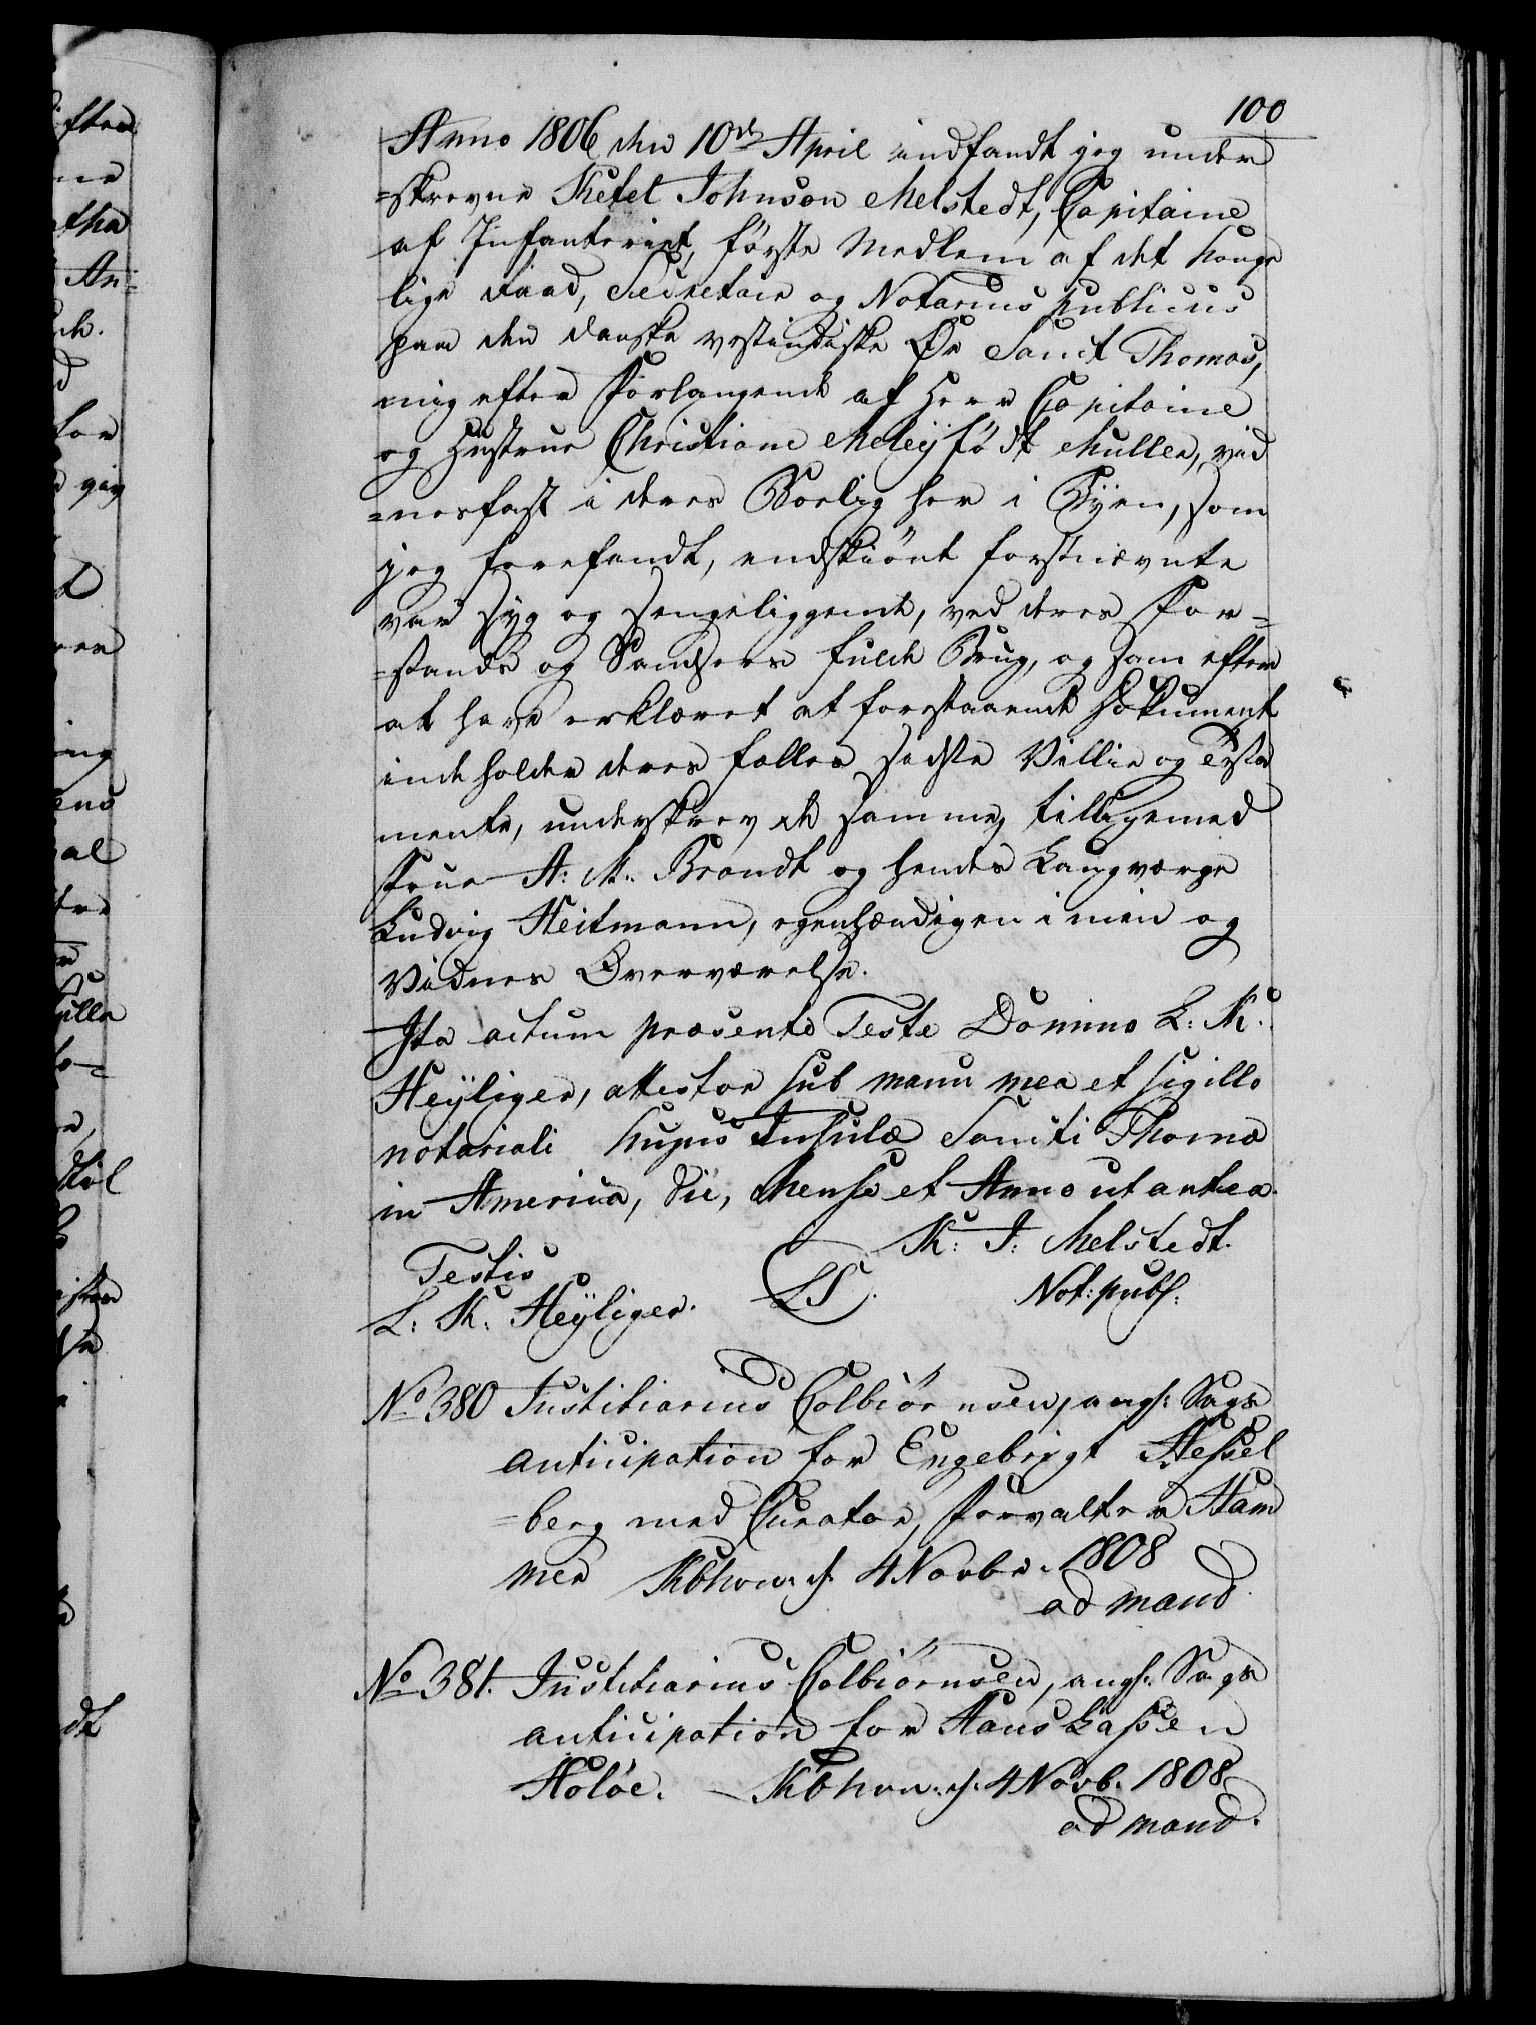 100
Anno 1806 den 10de April indfandt jeg under
=skrevne Ketel Johnson Melstedt, Capitaine
af Infanteriet, første Medlem af det konge
lige Raad, Secretair og Notarius publicus
paa den danske vestindiske Øe Sanct Thomas,
mig efter Forlangende af Herr Capitaine
og Hustrue Christiane Meley født Muller, vid
=nesfast i deres Boelig her i Byen, som
jeg forefandt, endskiønt førstnævnte
var syg og sengeliggende, ved deres For=
=stands og Sandsers fulde Brug, og som efter
at have erklæret at forestaaende Dokument
indeholder deres fælles sidste Villie og Testa
mente, underskrev de samme, tilligemed
Frue A: M. Brandt og hendes Laugværge
Ludvig Heitmann, egenhændigen i min og
Vidnes Overværelse.
Ita actum præsente Teste Domino L: K:
Heÿliger, attestor sub manu mea et sigillo
notariali hujus Insulæ Sancti Thomæ
in America, die, Mense et Anno ut antea.
K: J: Melstedt.
Testis
LS.
Not: publ:
L: K: Heÿliger.
No 380 Justitiarius Colbiørnsen, angl: Sags
anticipation for Engebrigt Hessel
=berg med Curator, Forvalter Ham
mer Kbhvn. d. 4 Novbr. 1808
ad mand.
No 381. Justitiarius Colbiørnsen, angl: Sags
anticipation for Hans Lassen
Holøe. Kbhvn. d. 4 Novb. 1808
ad mand.